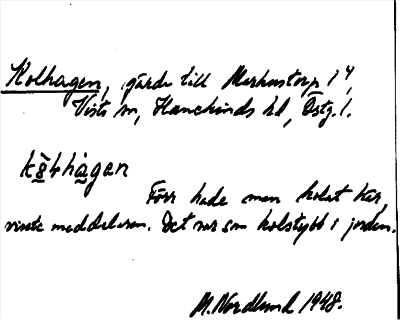 Kolhagen, gärde till Markustorp 1⁴,
Vists sn, Hanekinds hd, Östg. l.
kɷ̀ⱡhàgen
Förr hade man kolat här,
visste meddelaren. Det var som kolstybb i jorden.
M. Nordlund 1948.